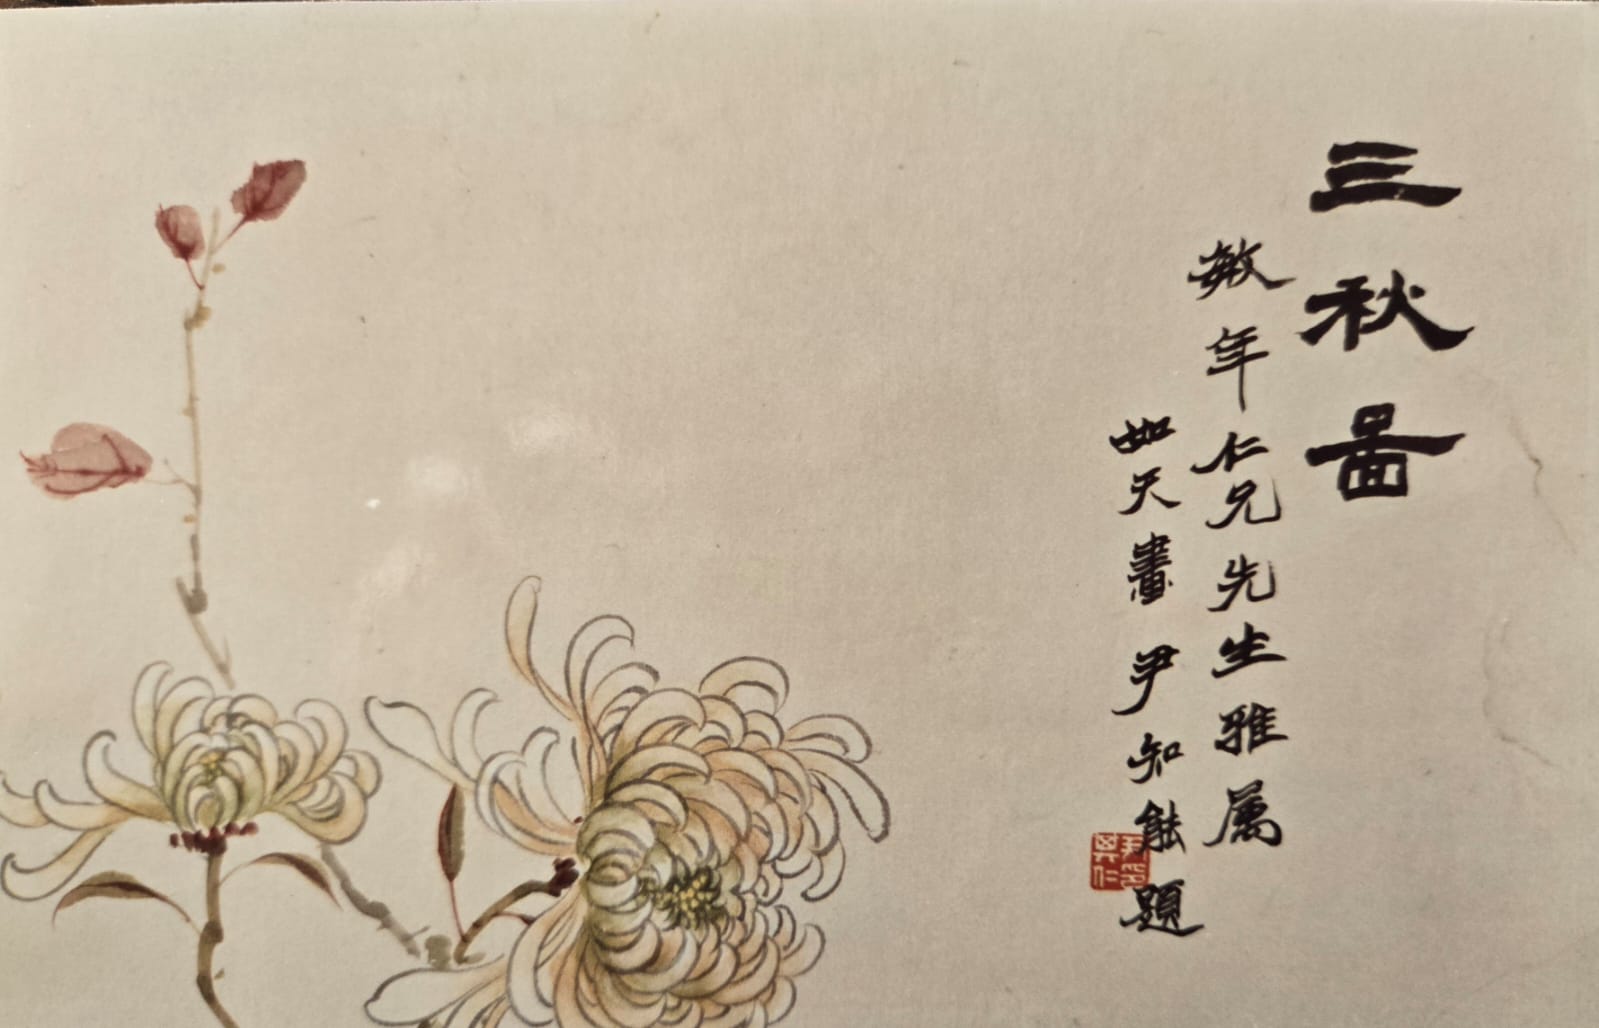 三秋啚
敏年仁兄先生雅属
如天畫 尹知能題